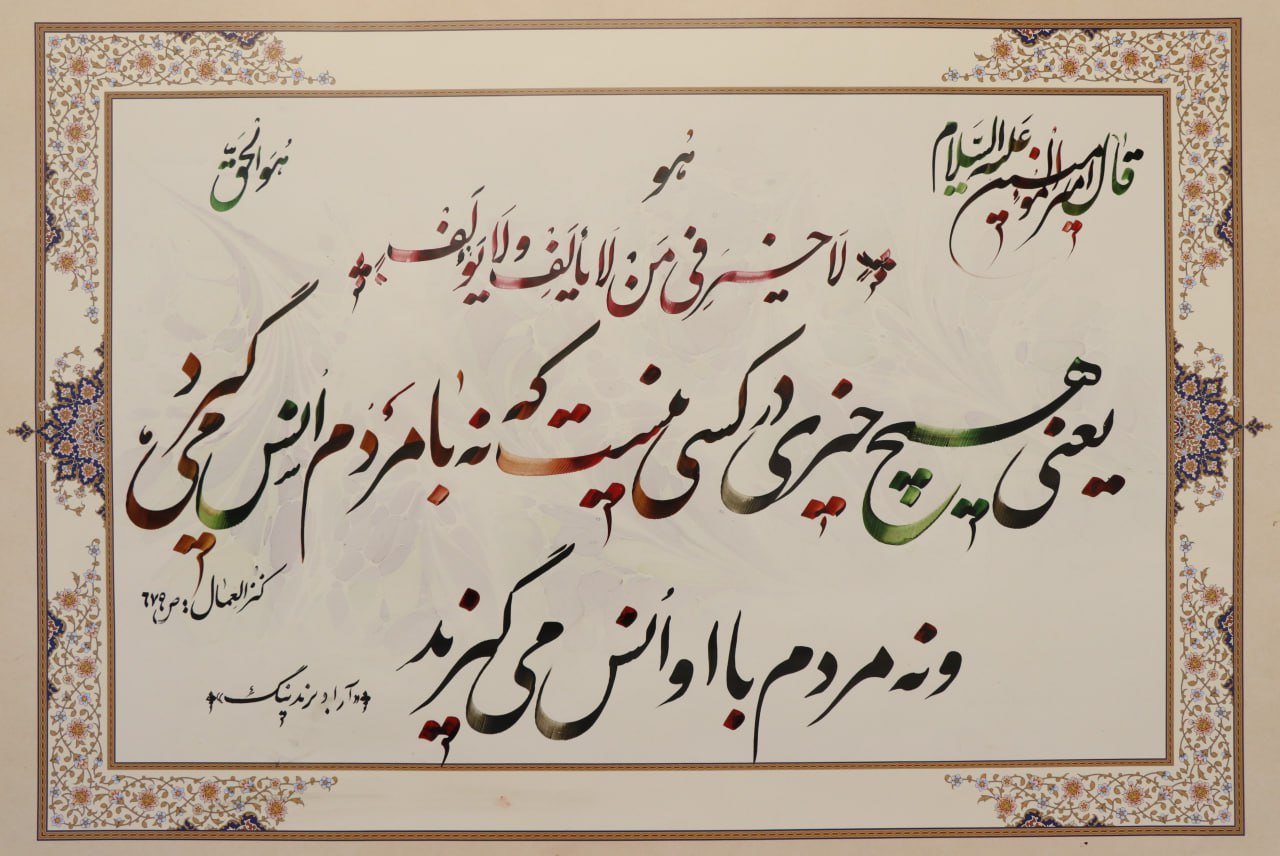 قال امیرالمؤمنین علیه السلام
هو
هو الحق
لا خیر فی من لا یألف و لا یؤلف
یعنی هیچ خیری در کسی نیست که نه با مردم اُنس می گیرد
و نه مردم با او اُنس می گیرند
کنز العمال: ص ۶۷۹
«آراد برندینگ»